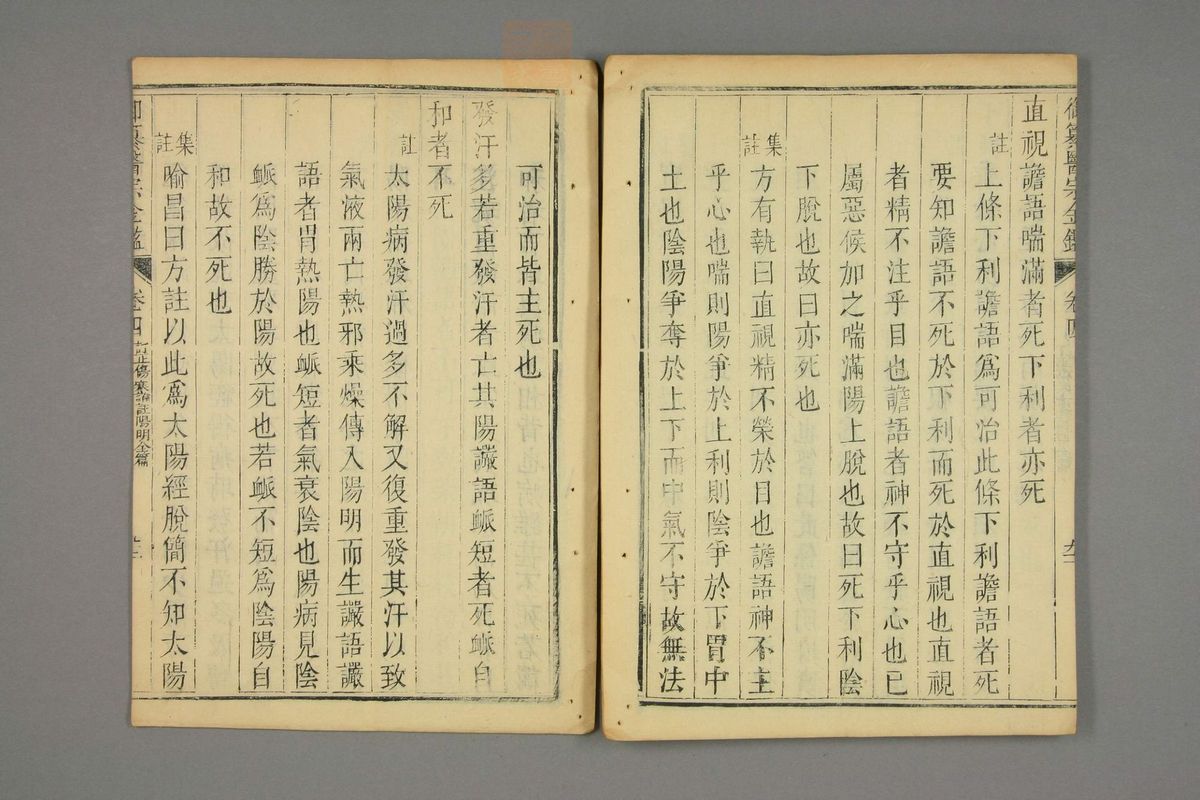 御纂醫宗金鑑 卷四
直視譫語喘滿者死下利者亦死
註上條下利譫語爲可治此條下利譫語者死
要知譫語不死於下利而死於直視也直視
者精不注乎目也譫語者神不守乎心也已
屬惡候加之喘滿陽上脫也故曰死下利陰
下脫也故曰亦死也
集註方有執曰直視精不榮於目也譫語神不主
乎心也喘則陽爭於上利則陰爭於下胃中
土也陰陽爭奪於上下而中氣不守故無法
可治而皆主死也
發汗多若重發汗者亡其陽讝語脈短者死脈自
和者不死
註太陽病發汗過多不解又復重發其汗以致
氣液兩亡熱邪乘燥傳入陽明而生讝語讝
語者胃熱陽也脈短者氣衰陰也陽病見陰
脈爲陰勝於陽故死也若脈不短爲陰陽自
和故不死也
集註喻昌曰方註以此爲太陽經脫簡不知太陽
御纂醫宗金鑑 卷四 訂正傷寒論註陽明全篇